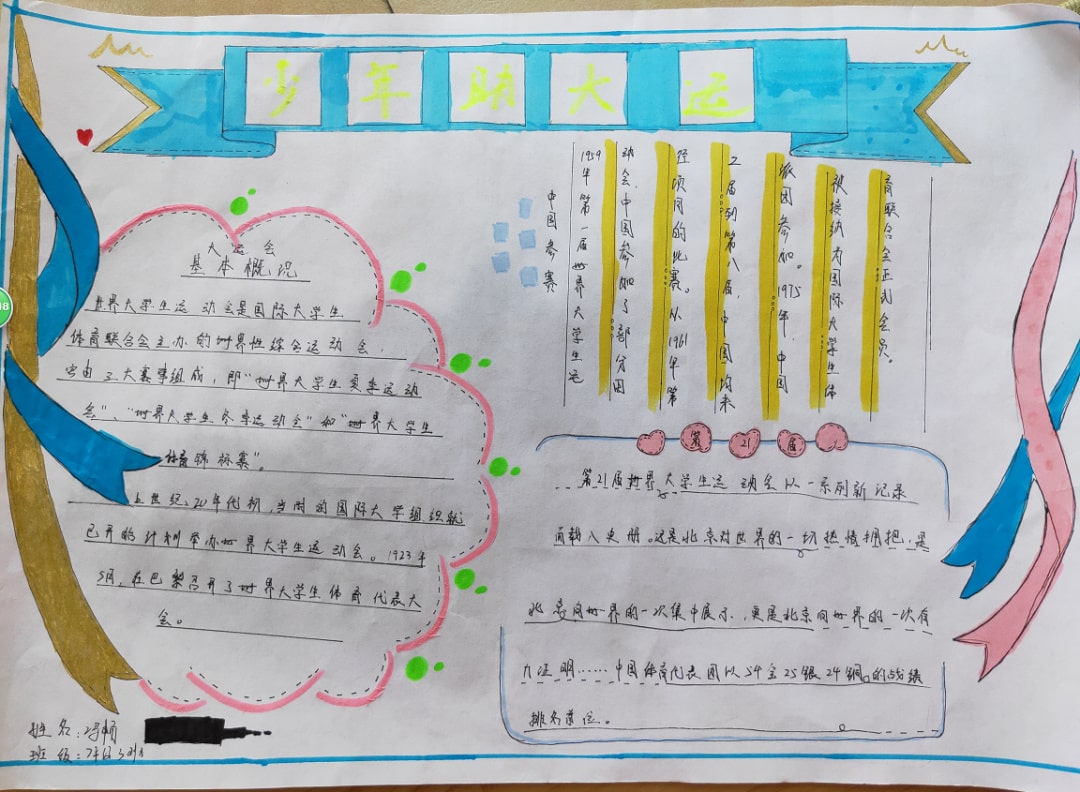 少年助大运
大运会
基本概况
世界大学生运动会是国际大学生
体育联合会主办的世界性综合运动会,
由三大赛事组成,即“世界大学生夏季运动
会”、“世界大学生冬季运动会”和“世界大学生
体育锦标赛”。
上世纪20年代初,当时的国际大学组织就
已开始计划举办世界大学生运动会。1923年
5月,在巴黎召开了世界大学生体育代表大
会。
中国参赛
1959年第一届世界大学生运
动会,中国参加了部分田
径项目的比赛。从1961年第
2届到第八届,中国均未
派团参加。1975年,中国
被接纳为国际大学生体
育联合会正式会员。
第21届
第21届世界大学生运动会以一系刷新记录
而载入史册。这是北京对世界的一切热情拥抱,是
北京向世界的一次集中展示,更是北京向世界的一次有
力证明……中国体育代表团以54金25银24铜的战绩
排名首位。
姓名:
班级: